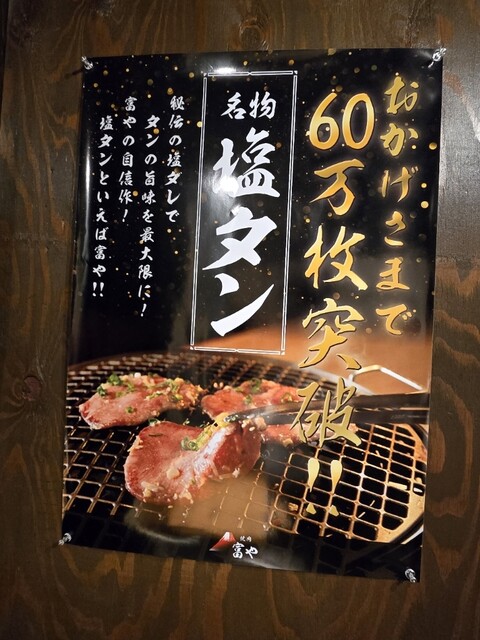 おかげさまで
60万枚突破!!
名物
塩タン
秘伝の塩ダレで
タンの旨味を最大限に!
富やの自信作!
塩タンといえば富や!!
焼肉
富や